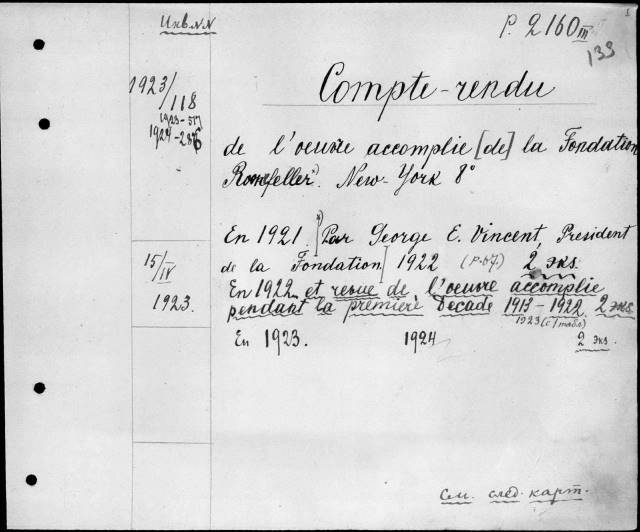 Инв. N N
P. 2160 III
133
1923/118
1923-517
1924-286
Compte-rendu
de l'oeuvre accomplie [de] la Fondation
Rockefeller. New-York 8°
En 1921. [Par George E. Vincent, President
de la Fondation] 1922 (P.67) 2 экз.
15/IV
1923.
En 1922 et revue de l'oeuvre accomplie
pendant la première Decade 1913-1922. 2 экз.
1923 (с 1 табл)
En 1923. 1924 2 экз.
См. след. карт.